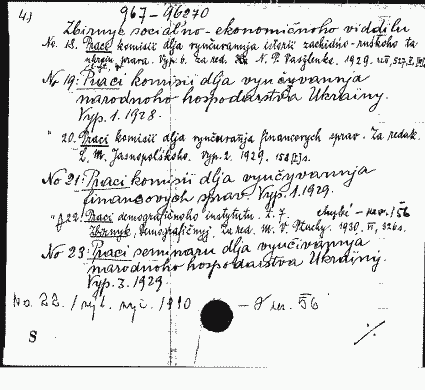 4)
967-96270
Zbirnyc socialno-ekonomičnoho viddilu
No. 18. Prace komisii dlja vyučuvannja istorii zachidno-ruśkoho ta
prava. Vyp. 6. Za red. N. P. Vasylenka. 1929.
No 19: Praci komisii dlja vyučyvannja
narodnoho hospodarstva Ukrainy.
Vyp. 1. 1928.
" 20. Praci komisii dlja vyučuvańja financovych sprav. Za redak.
L. M. Jasnopolśkoho. Vyp. 2. 1929. 158 [2]s.
No 21: Praci komisii dlja vyučyvannja
financovych sprav. Vyp. 1. 1929.
" 22. Praci demografičnoho instytutu. T. 7.
Zbirnyk demografičnyj. Za red. M. V. Ptuchy. 1930. VI, 326s.
No 23: Praci seminaru dlja vyučivannja
narodnoho hospodarstva Ukrainy.
Vyp. 3. 1929.
No. 22. 1930 56
S